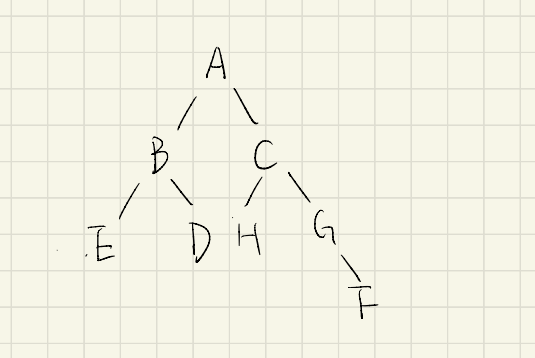 A
B C
E D H G
F